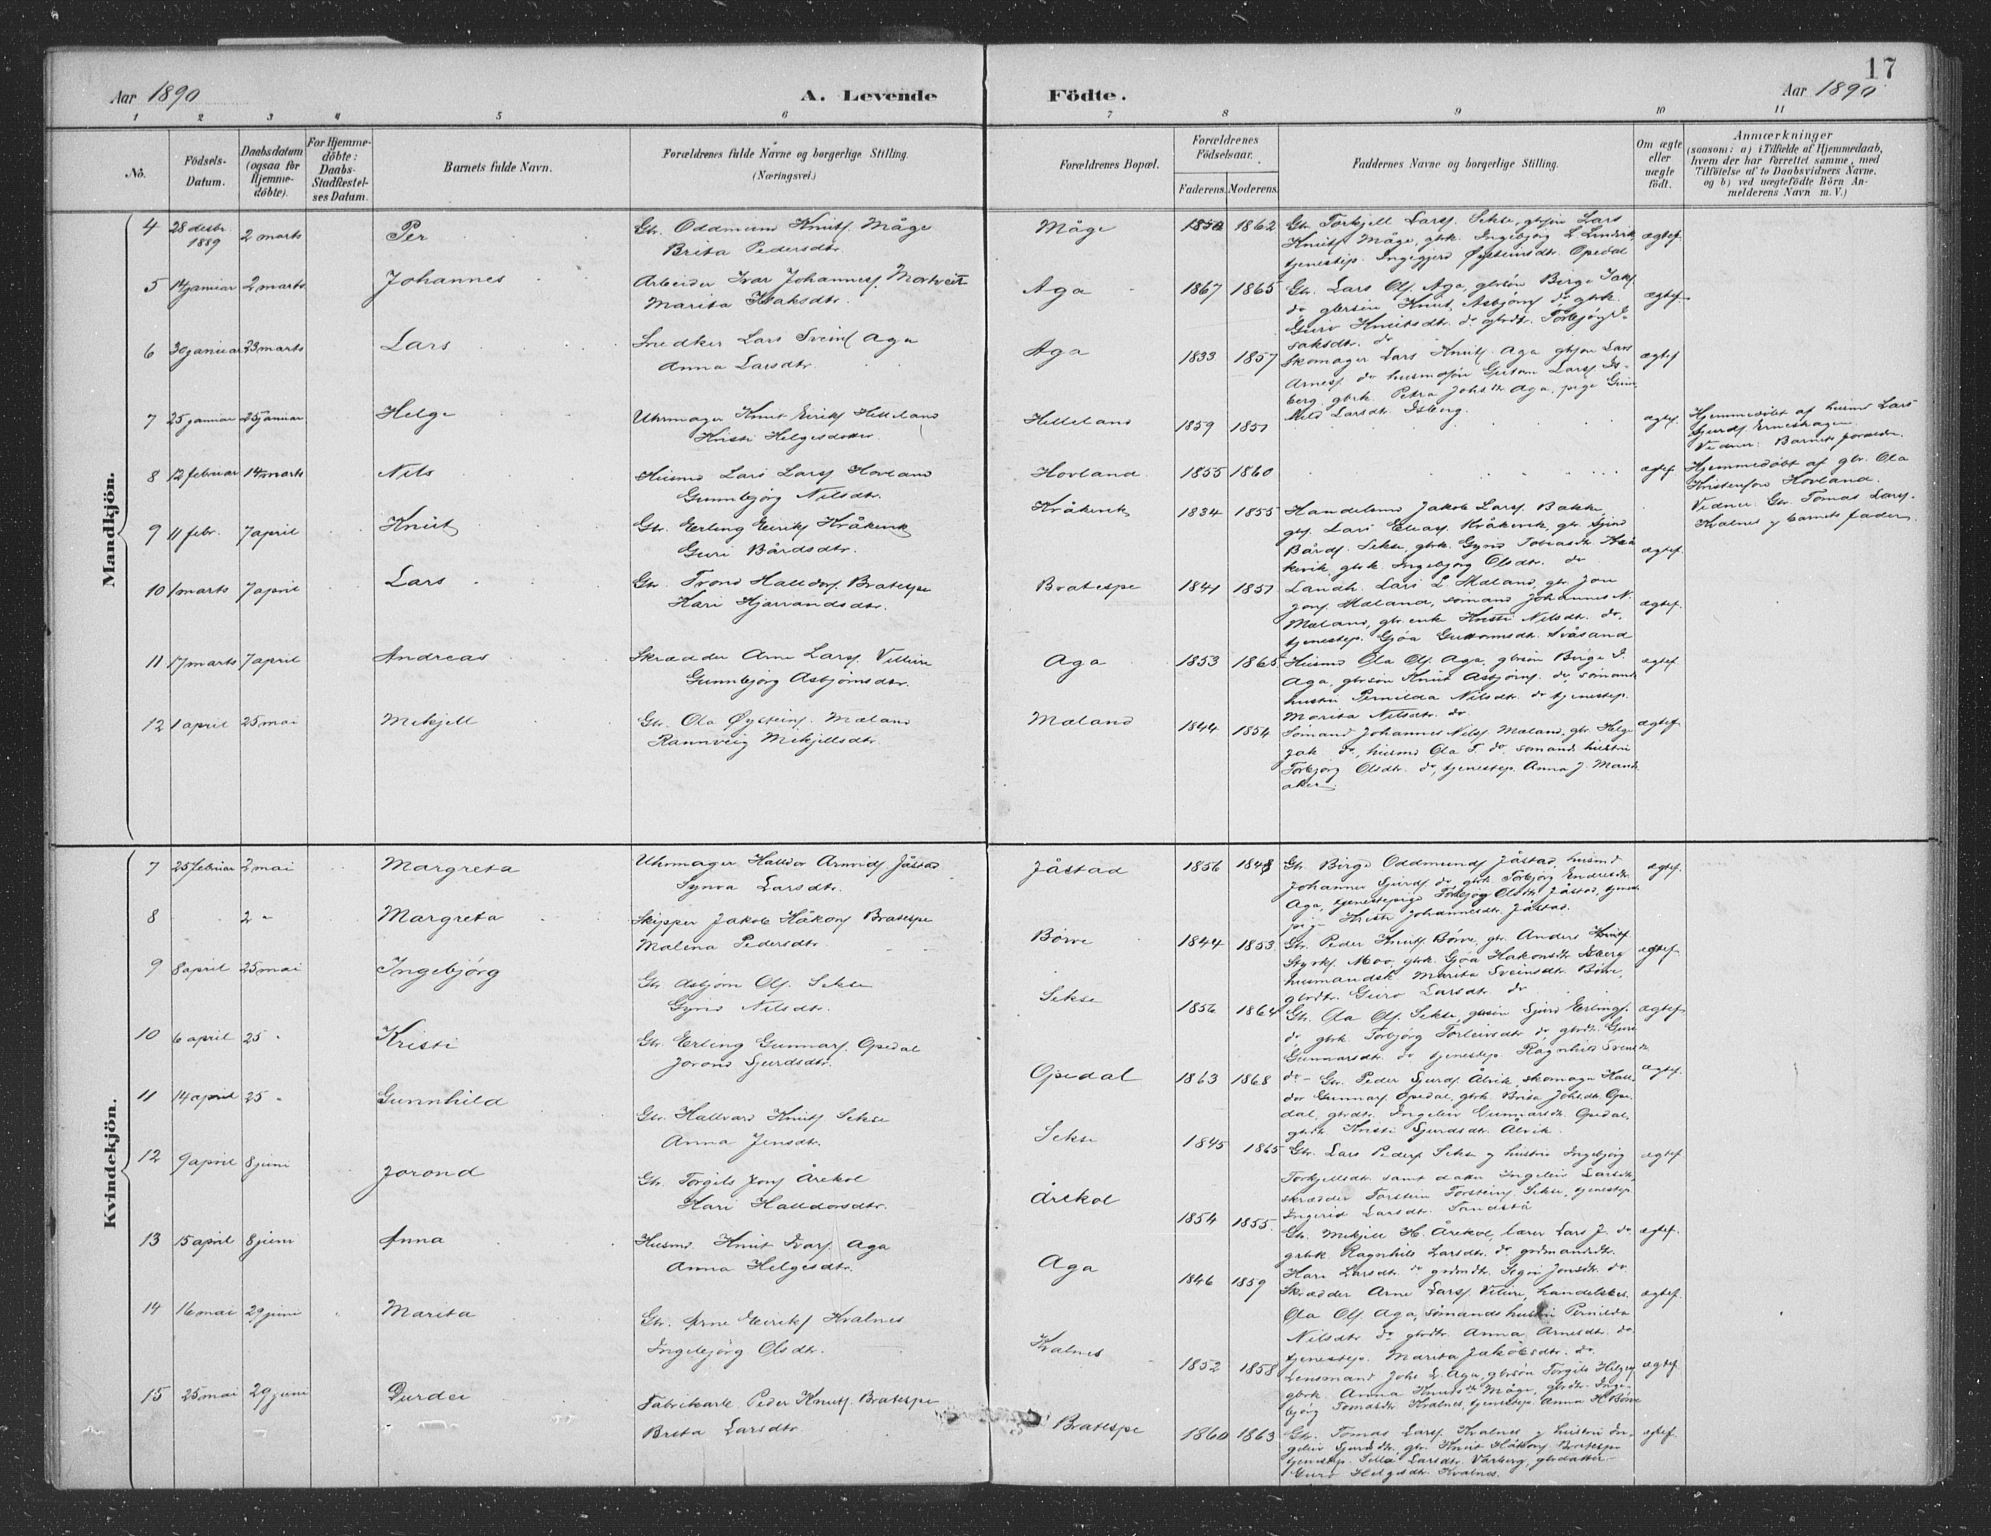 Aar 1890
A. Levende
Födte.
17
Aar 1890
1 2 3 4 5 6 7 8 9 10 11
No.
Födsels-Datum.
Daabsdatum (ogsaa for Hjemmedöbte).
For Hjemmedöbte: Daabs-Stadfæstelses Datum.
Barnets fulde Navn.
Forældrenes fulde Navne og borgerlige Stilling. (Næringsvei.)
Forældrenes Bopæl.
Forældrenes Födselsaar.
Faderens. Moderens.
Faddernes Navne og borgerlige Stilling.
Om ægte eller uægte födt.
Anmærkninger
(saasom: a) i Tilfælde af Hjemmedaab, hvem der har forrettet samme, med Tilföielse af to Daabsvidners Navne, og b) ved uægtefödte Börn Anmelderens Navn m. V.)
Mandkjön.
4 28 desbr 1889 2 marts Per Gbr. Oddmund Knuts. Måge
Brita Pedersdtr. Måge 1850 1862 Gbr. Torkjell Lars. Sekse, gbrsøn Lars
Knuts. Måge, gbrk. Ingebjørg L.
tjenestep. Ingegjerd Øysteinsdtr. Opedal ægtef.
5 14 januar 2 marts Johannes Arbeider Ivar Johannes.
Marita Isaksdtr. Aga 1867 1865 Gbr. Lars Ols. Aga, gbrsøn Birge Isaks.
do gbrsøn Knut Asbjörns. do gbrk.
Guro Knutsdtr. do gbrdt. Torbjørg I-
saksdtr. do ægtef.
6 30 januar 23 marts Lars Snedker Lars Sveins. Aga
Anna Larsdtr. Aga 1833 1857 Skomager Lars Knuts. Aga gbrsøn Lars
Arnes. do husmsøn Gutorm Lars. Is-
berg, gbrk. Petra Johsdtr Aga, pige Gun-
hild Larsdtr. Isberg. ægtef.
7 25 januar 25 januar Helge Uhrmager Knut Eiriks. Helleland
Kristi Helgesdotter. Helleland 1859 1851 ægtef. Hjemmedøbt af husmd Lars
Sjurds.
Vidner: Barnets forældre.
8 12 februar 14 marts Nils Husmd Lars Lars. Hovland
Gunnbjørg Nilsdtr. Hovland 1855 1860 ægtef. Hjemmedøbt af gbr. Ola
Kristenson Hovland.
Vidner: Gbr Tomas Lars.
Kvalnes og barnets fader.
9 11 febr. 7 april Knut Gbr. Erling Eiriks. Kråkevik
Guri Bårdsdtr. Kråkevik 1834 1855 Handelsmd Jakob Lars. Bakke,
gbs. Lars Elias. Kråkevik, gbr. Sjurd
Bårds. Sekse, gbrk. Gyrid Tobiasdtr. Krå-
kevik, gbrk. Ingebjørg Olsdtr. do ægtef.
10 1 marts 7 april Lars Gbr. Trond Halldors. Bratespe
Kari Hjarrandsdtr. Bratespe 1841 1851 Landh. Lars L Mæland, gbr. Jon
Jons. Mæland, sømand Johannes N.
Mæland, gbr. enk. Kristi Nilsdtr. do,
tjenestep. Gjøa Guttormsdtr. Svåsand ægtef.
11 17 marts 7 april Andreas Skrædder Arne Lars. Vitture
Gunnbjørg Asbjörnsdtr. Aga 1853 1865 Husmd Ola Ols. Aga, gbrsøn Birge I.
Aga, gbrsøn Knut Asbjörns. do, sømand-
hustru Pernilda Nilsdtr. do tjenestep.
Marita Nilsdtr. do ægtef.
12 1 april 25 mai Mikjell Gbr. Ola Øysteins. Mæland
Rannveig Mikjellsdtr. Mæland 1844 1854 Sømand Johannes Nils. Mæland, gbr. Helge
do, husmd Ola T. do, sømands hustru
Torbjørg Olsdtr. do, tjenestep. Anna J. Mand-
aker. ægtef.
Kvindekjön.
7 25 februar 2 mai Margreta Uhrmager Halldor Arnvids. Jåstad
Synva Larsdtr. Jåstad 1856 1848 Gbr. Birge Oddmunds. Jåstad husmd
Johannes Sjurds. do, gbrk Torbjørg Endresdtr
Aga, tjenestepige Torbjørg Olsdtr. Jåstad,
Kristi Johannesdtr. Jåstad. ægtef.
8 2 " Margreta Skipper Jakob Håkons. Bratespe
Malena Pedersdtr. Børve 1844 1853 Gbr. Peder Knuts. Børve, gbr. Anders Knuts.
Styrks. Moo, gbrk. Gjøa Hakonsdtr Isberg
husmandsk Marita Sveinsdtr. Børve,
gbrdtr. Guro Larsdtr do ægtef.
9 8 april 25 mai Ingebjørg Gbr Asbjørn Ols. Sekse
Gyrid Nilsdtr. Sekse 1856 1864 Gbr. Ola Ols. Sekse, gbrsøn Sjurd Erlings.
do, gbrk. Torbjørg Torleivsdtr. do, gbrdtr. Guri
Gunnarsdtr. do tjenestep Ragnhild Svendsdtr
do ægtef.
10 6 april 25 " Kristi Gbr. Erling Gunnars. Opedal
Jorond Sjurdsdtr. Opedal 1863 1868 Gbr. Peder Sjurds. Ålvik, skomager Hall-
dor Gunnars. Opedal, gbrk Brita Johsdtr Ope-
dal, gbrdtr. Ingeleiv Gunnarsdtr. Opedal,
gbrdt. Kristi Sjurdsdtr. Ålvik. ægtef.
11 14 april 25 " Gunnhild Gbr. Hallvard Knuts. Sekse
Anna Jensdtr. Sekse 1845 1865 Gbr. Lars Peders. Sekse og hustru Ingebjørg
Torkjellsdtr. samt datter Ingeleiv Larsdtr,
skrædder Torstein Torsteins. Sekse, tjenestep.
Ingerid Larsdtr. Sandstå ægtef.
12 9 april 8 juni Jorond Gbr. Torgils Jons. Årekol
Kari Halldorsdtr. Årekol 1854 1855 Gbr. Mikjell H. Årekol, lærer Lars J. do
gbrk. Ragnhild Larsdtr. do,
Kari Larsdtr. do Jonsdtr. do ægtef.
13 15 april 8 juni Anna Husmd Knut Ivars. Aga
Anna Helgesdtr. Aga 1846 1859 Skrædder Arne Lars. Viture, handelsbet.
Ola Ols. Aga, sømands hustru Pernilda
Nilsdtr do gbrdtr. Anna Arnesdtr. do
tjenestep. Marita Jakobsdtr. do ægtef.
14 16 mai 29 juni Marita Gbr. Arne Eiriks. Kvalnes
Ingebjørg Olsdtr. Kvalnes 1852 1858 Lensmand Johs L. Aga, gbrsøn Torgils Helges.
gbrk. Anna Knutsdtr Måge, gbrdtr. Inge-
bjørg Tomasdtr Kvalnes, tjenestep. Anna H Børve ægtef.
15 25 mai 29 juni Durdei Fabrikarb. Peder Knuts. Bratespe
Brita Larsdtr. Bratespe 1860 1863 Gbr. Tomas Lars. Kvalnes og hustru In-
geleiv Sjursdtr, gbr. Knut Håkons. Bratespe
tjenestep. Larsdtr. Varberg, gbrdatter
Guro Helgesdtr. Kvalnes. ægtef.